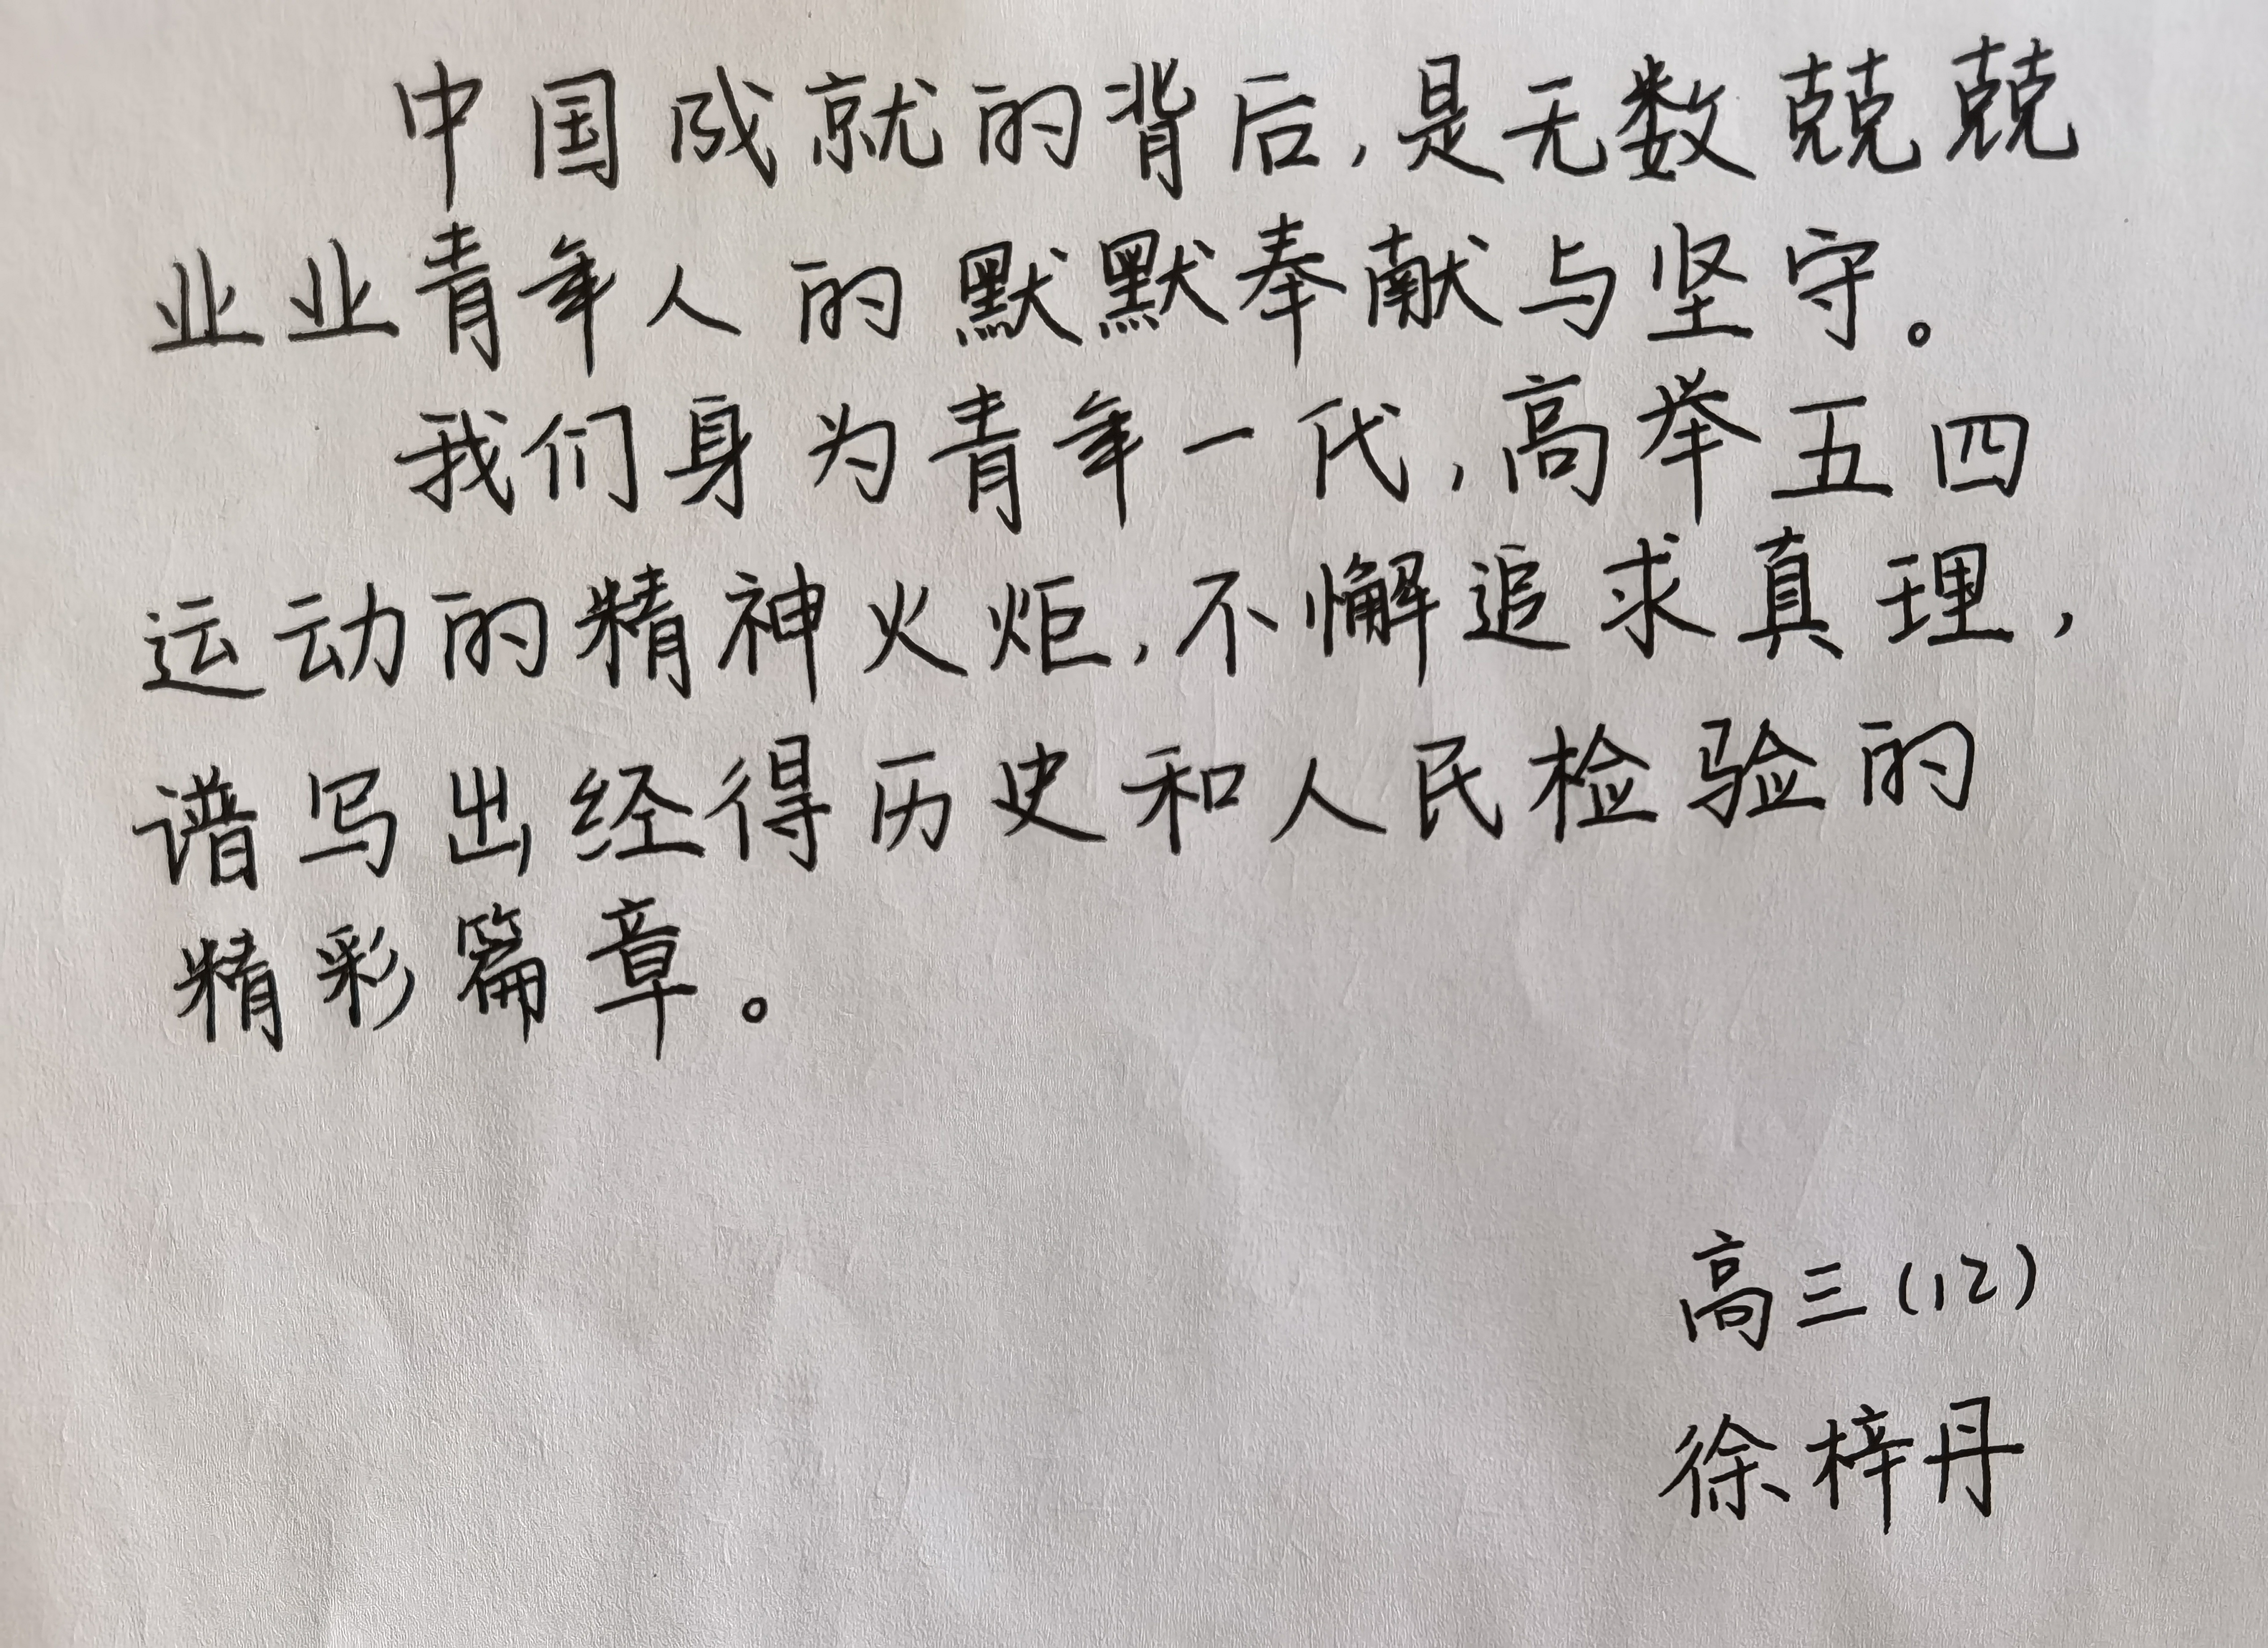 中国成就的背后,是无数兢兢
业业青年人的默默奉献与坚守。
我们身为青年一代,高举五四
运动的精神火炬,不懈追求真理,
谱写出经得历史和人民检验的
精彩篇章。
高三(12)
徐梓丹